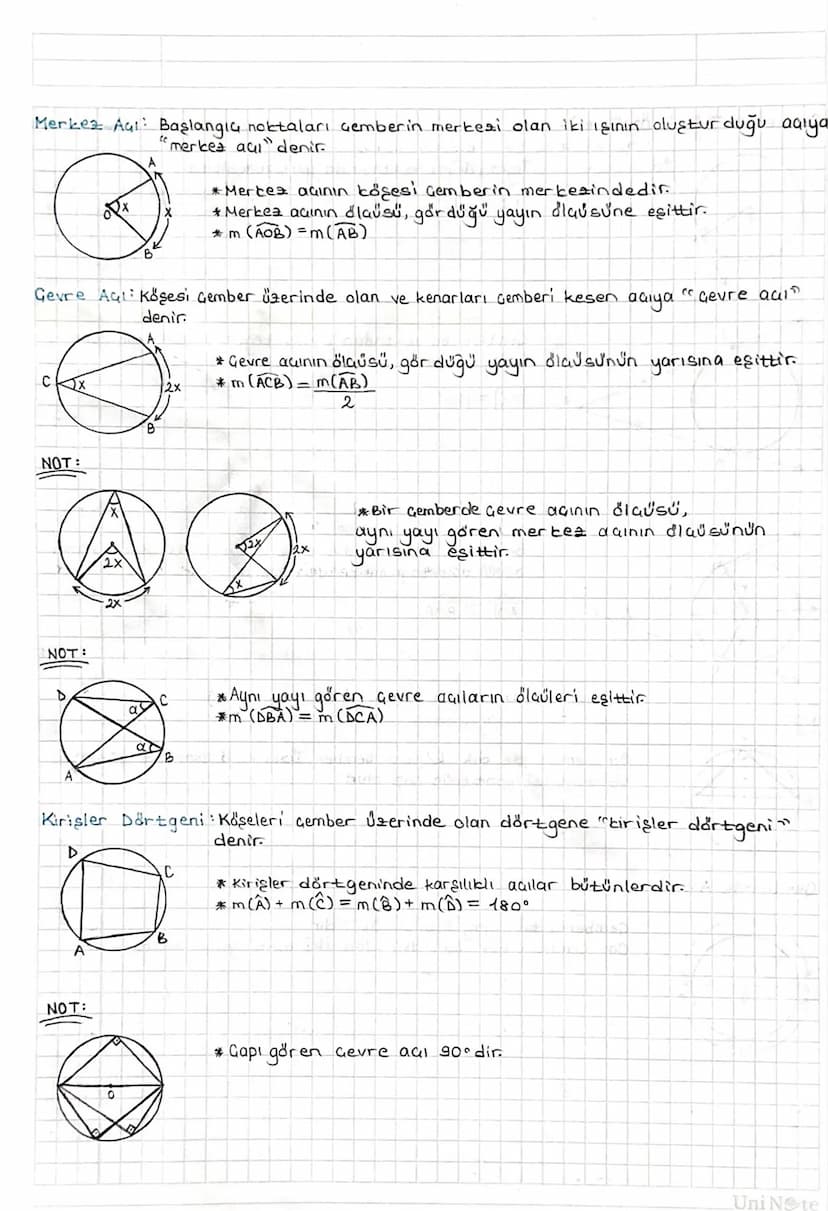 Merkez Açı: Başlangıç noktaları çemberin merkezi olan iki ışının oluşturduğu açıya
"merkez açı" denir.
A
O
x
x
B
* Merkez açının köşesi çemberin merkezindedir.
* Merkez açının ölçüsü, gördüğü yayın ölçüsüne eşittir.
* m(AOB) = m(AB)
Çevre Açı: Köşesi çember üzerinde olan ve kenarları çemberi kesen açıya "çevre açı"
denir.
A
C
x
2x
B
* Çevre açının ölçüsü, gördüğü yayın ölçüsünün yarısına eşittir.
* m(ACB) = m(AB)
2
NOT:
x
2x
2x
2x
2x
x
* Bir çemberde çevre açının ölçüsü,
aynı yayı gören merkez açının ölçüsünün
yarısına eşittir.
NOT:
D
C
α
α
B
A
* Aynı yayı gören çevre açıların ölçüleri eşittir.
* m(DBA) = m(DCA)
Kirişler Dörtgeni: Köşeleri çember üzerinde olan dörtgene "kirişler dörtgeni"
denir.
D
C
B
A
* Kirişler dörtgeninde karşılıklı açılar bütünlerdir.
* m(Â) + m(Ĉ) = m(B̂) + m(D̂) = 180°
NOT:
O
* Çapı gören çevre açı 90° dir.
UniNote